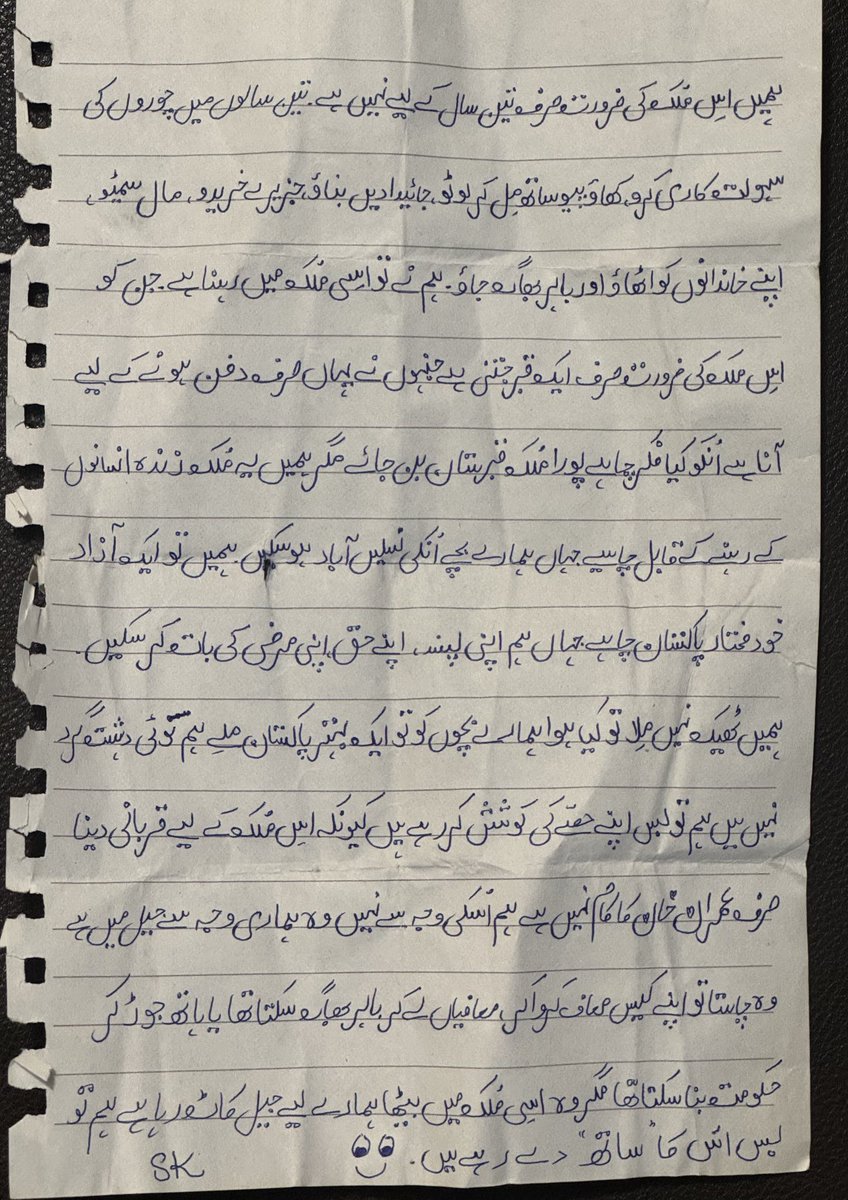 ہمیں اِس مُلک کی ضرورت صرف تین سال کے لیے نہیں ہے. تین سالوں میں چوروں کی
سہولت کاری کرو، کھاؤ پیو ساتھ مِل کر لوٹو، جائیدادیں بناؤ، جزیرے خریدو، مال سمیٹو،
اپنے خاندانوں کو اٹھاؤ اور باہر بھاگ جاؤ. ہم نے تو اِسی مُلک میں رہنا ہے. جن کو
اِس ملک کی ضرورت صرف ایک قبر جتنی ہے جنہوں نے یہاں صرف دفن ہونے کے لیے
آنا ہے اُنکو کیا فکر چاہے پورا مُلک قبرستان بن جائے مگر ہمیں یہ مُلک زندہ انسانوں
کے رہنے کے قابل چاہیے جہاں ہمارے بچے اُنکی نسلیں آباد ہو سکیں. ہمیں تو ایک آزاد
خودمختار پاکستان چاہیے جہاں ہم اپنی پسند، اپنے حق، اپنی مرضی کی بات کر سکیں.
ہمیں ٹھیک نہیں مِلا تو کیا ہوا ہمارے بچوں کو تو ایک بہتر پاکستان ملے ہم کوئی دہشت گرد
نہیں ہیں ہم تو بس اپنے حصّے کی کوشش کر رہے ہیں کیونکہ اِس مُلک کے لیے قربانی دینا
صرف عمران خان کا کام نہیں ہے ہم اُسکی وجہ سے نہیں وہ ہماری وجہ سے جیل میں ہے
وہ چاہتا تو اپنے کیس معاف کروا کر معافیاں لے کر باہر بھاگ سکتا تھا یا ہاتھ جوڑ کر
حکومت بنا سکتا تھا مگر وہ اسی مُلک میں بیٹھا ہمارے لیے جیل کاٹ رہا ہے ہم تو
بس اُس کا "ساتھ" دے رہے ہیں.
SK